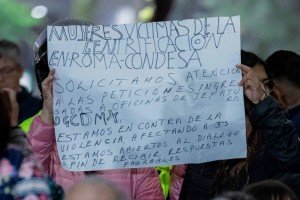 MUJERES VÍCTIMAS DE LA
GENTRIFICACIÓN
EN ROMA-CONDESA
SOLICITAMOS ATENCIÓN
A LAS PETICIONES INGRE
SADAS A OFICINAS DE JEFATURA
DGCDMX
ESTAMOS EN CONTRA DE LA
VIOLENCIA, AFECTANDO A 3ºS
ESTAMOS ABIERTOS AL DIALOGO
A FIN DE RECIBIR RESPUESTAS
FAVORABLES